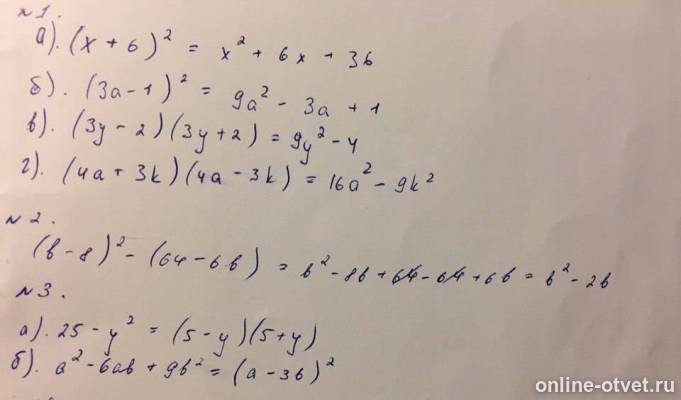 №1.
а). (x + 6)² = x² + 6x + 36
б). (3a - 1)² = 9a² - 3a + 1
в). (3y - 2)(3y + 2) = 9y² - 4
г). (4a + 3k)(4a - 3k) = 16a² - 9k²
№2.
(b - 8)² - (64 - 6b) = b² - 8b + 64 - 64 + 6b = b² - 2b
№3.
а). 25 - y² = (5 - y)(5 + y)
б). a² - 6ab + 9b² = (a - 3b)²
online-otvet.ru